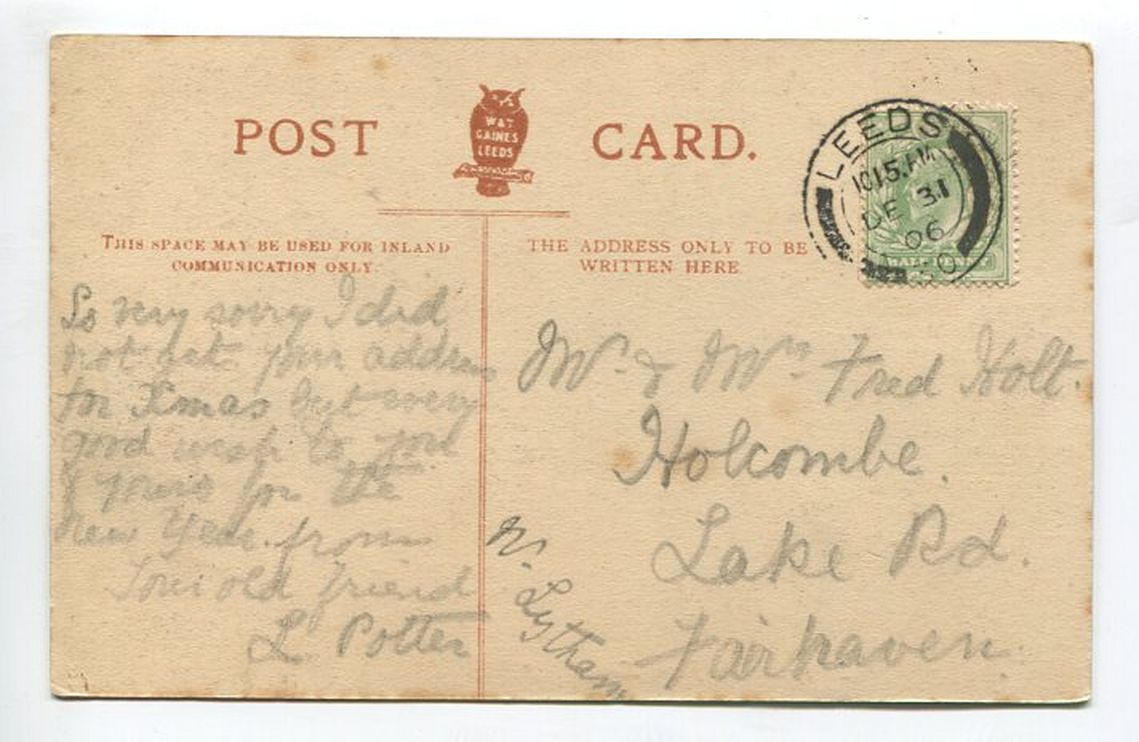 POST CARD.
W & T
GAINES
LEEDS
THIS SPACE MAY BE USED FOR INLAND
COMMUNICATION ONLY.
THE ADDRESS ONLY TO BE
WRITTEN HERE.
LEEDS
1015.PM
DE 31
06
HALFPENNY
So very sorry I did
not get your address
for Xmas but every
good wish to you
& yours for the
New Year. from
Your old friend
L Potter
Mr. & Mrs Fred Holt.
Holcombe.
Lake Rd.
Fairhaven.
Nr. Lytham